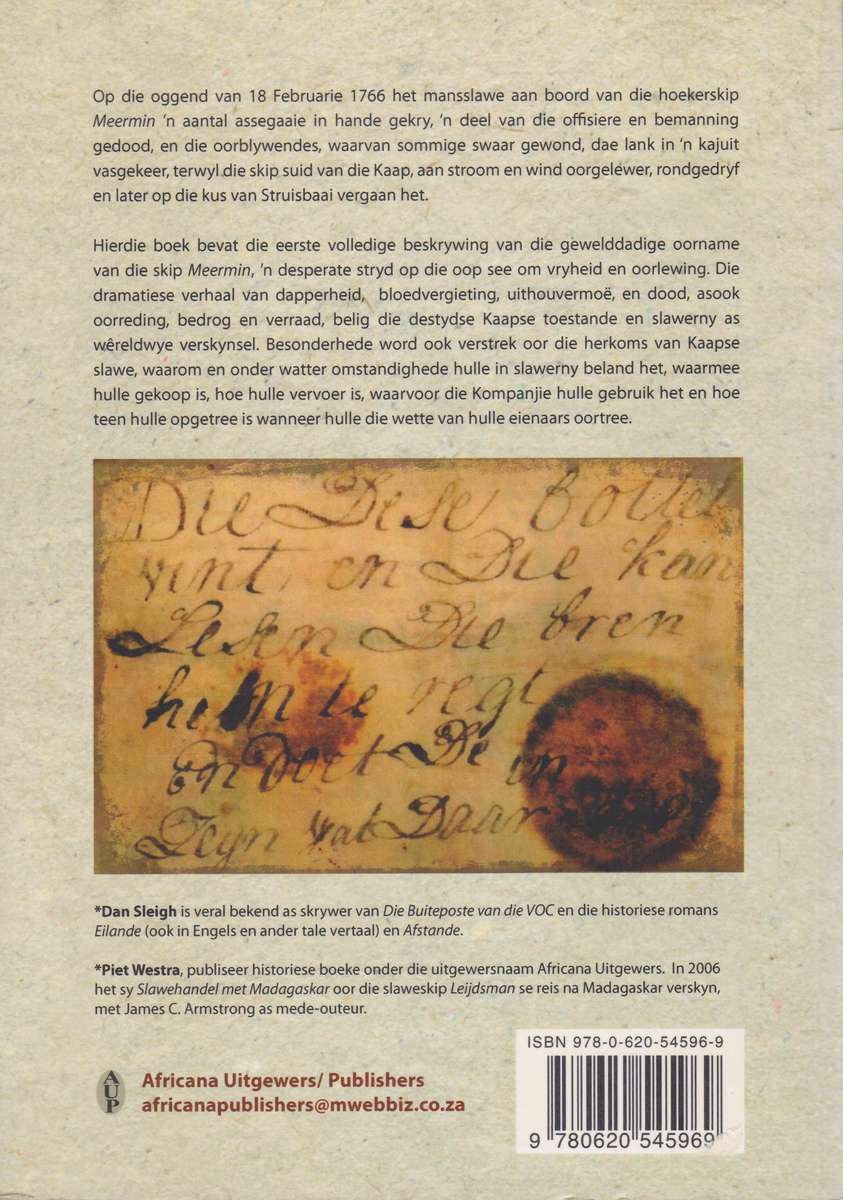 Op die oggend van 18 Februarie 1766 het mansslawe aan boord van die hoekerskip
Meermin 'n aantal assegaaie in hande gekry, 'n deel van die offisiere en bemanning
gedood, en die oorblywendes, waarvan sommige swaar gewond, dae lank in 'n kajuit
vasgekeer, terwyl die skip suid van die Kaap, aan stroom en wind oorgelewer, rondgedryf
en later op die kus van Struisbaai vergaan het.
Hierdie boek bevat die eerste volledige beskrywing van die gewelddadige oorname
van die skip Meermin, 'n desperate stryd op die oop see om vryheid en oorlewing. Die
dramatiese verhaal van dapperheid, bloedvergieting, uithouvermoë, en dood, asook
oorreding, bedrog en verraad, belig die destydse Kaapse toestande en slawerny as
wêreldwye verskynsel. Besonderhede word ook verstrek oor die herkoms van Kaapse
slawe, waarom en onder watter omstandighede hulle in slawerny beland het, waarmee
hulle gekoop is, hoe hulle vervoer is, waarvoor die Kompanjie hulle gebruik het en hoe
teen hulle opgetree is wanneer hulle die wette van hulle eienaars oortree.
Die Dese bottel
vint, en Die kan
Lesen Die bren
hem te regt
En Doet De
Zeyn Wat Daar
*Dan Sleigh is veral bekend as skrywer van Die Buiteposte van die VOC en die historiese romans
Eilande (ook in Engels en ander tale vertaal) en Afstande.
*Piet Westra, publiseer historiese boeke onder die uitgewersnaam Africana Uitgewers. In 2006
het sy Slawehandel met Madagaskar oor die slaweskip Leijdsman se reis na Madagaskar verskyn,
met James C. Armstrong as mede-outeur.
ISBN 978-0-620-54596-9
AUP
Africana Uitgewers/ Publishers
africanapublishers@mwebbiz.co.za
9 780620 545969